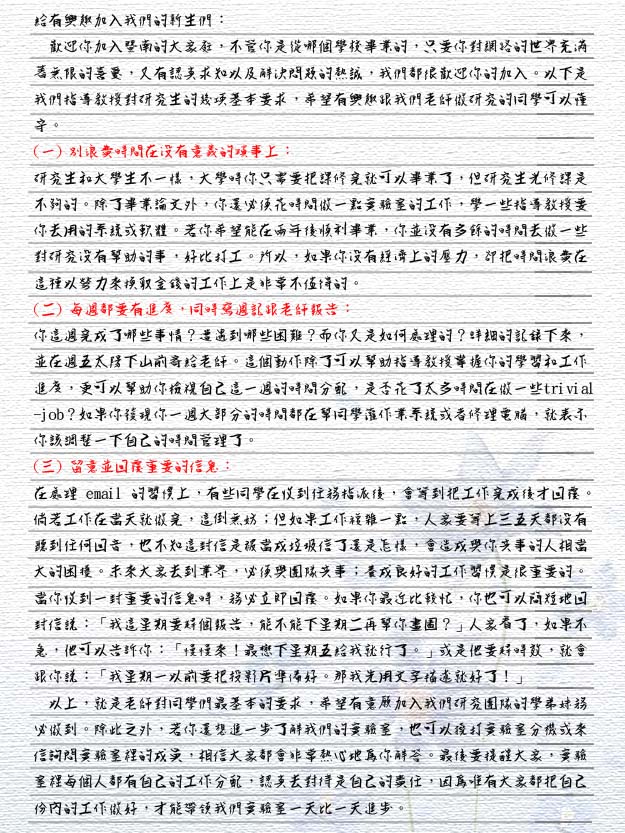 給有興趣加入我們的新生們：
歡迎你加入暨南的大家庭，不管你是從哪個學校畢業的，只要你對網路的世界充滿
著無限的喜愛，又有認真求知以及解決問題的熱誠，我們都很歡迎你的加入。以下是
我們指導教授對研究生的幾項基本要求，希望有興趣跟我們老師做研究的同學可以謹
守。
(一) 別浪費時間在沒有意義的瑣事上：
研究生和大學生不一樣，大學時你只需要把課修完就可以畢業了，但研究生光修課是
不夠的。除了畢業論文外，你還必須花時間做一點實驗室的工作，學一些指導教授要
你去用的系統或軟體。若你希望能在兩年後順利畢業，你並沒有多餘的時間去做一些
對研究沒有幫助的事，好比打工。所以，如果你沒有經濟上的壓力，卻把時間浪費在
這種以勞力來換取金錢的工作上是非常不值得的。
(二) 每週都要有進度，同時寫週記跟老師報告：
你這週完成了哪些事情？遭遇到哪些困難？而你又是如何處理的？詳細的記錄下來，
並在週五太陽下山前寄給老師。這個動作除了可以幫助指導教授掌握你的學習和工作
進度，更可以幫助你檢視自己這一週的時間分配，是否花了太多時間在做一些trivial
-job？如果你發現你一週大部分的時間都在單同學灌作業系統或者修理電腦，就表示
你該調整一下自己的時間管理了。
(三) 留意並回覆重要的信息：
在處理 email 的習慣上，有些同學在收到任務指派後，會等到把工作完成後才回覆。
倘若工作在當天就做完，這倒無妨；但如果工作複雜一點，人家要等上三五天都沒有
聽到任何回音，也不知這封信是被當成垃圾信了還是怎樣，會造成與你共事的人相當
大的困擾。未來大家去到業界，必須與團隊共事；養成良好的工作習慣是很重要的。
當你收到一封重要的信息時，務必立即回覆。如果你最近比較忙，你也可以簡短地回
封信說：「我這星期要辦個報告，能不能下星期二再幫你畫圖？」人家看了，如果不
急，他可以告訴你：「慢慢來！最慢下星期五給我就行了。」或是他要辦時效，就會
跟你說：「我星期一以前要把投影片準備好。那我先用文字描述就好了！」
以上，就是老師對同學們最基本的要求，希望有意願加入我們研究團隊的學弟妹務
必做到。除此之外，若你還想進一步了解我們的實驗室，也可以撥打實驗室分機或來
信詢問實驗室裡的成員，相信大家都會非常熱心地為你解答。最後要提醒大家，實驗
室裡每個人都有自己的工作分配，認真去對待是自己的責任，因為唯有大家都把自己
份內的工作做好，才能帶領我們實驗室一天比一天進步。